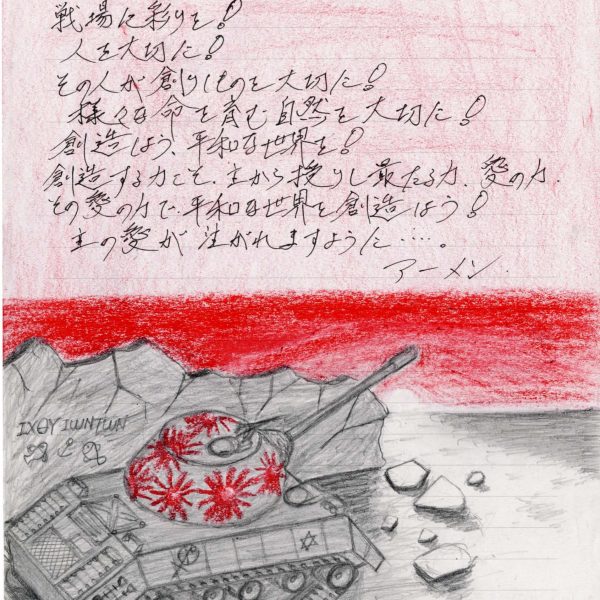 戦場に彩りを!
人を大切に!
その人が創りしものを大切に!
様々な命を育む自然を大切に!
創造しよう、平和な世界を!
創造する力こそ、主から授りし最たる力、愛の力、
その愛の力で、平和な世界を創造しよう!
主の愛が注がれますように……。
アーメン.